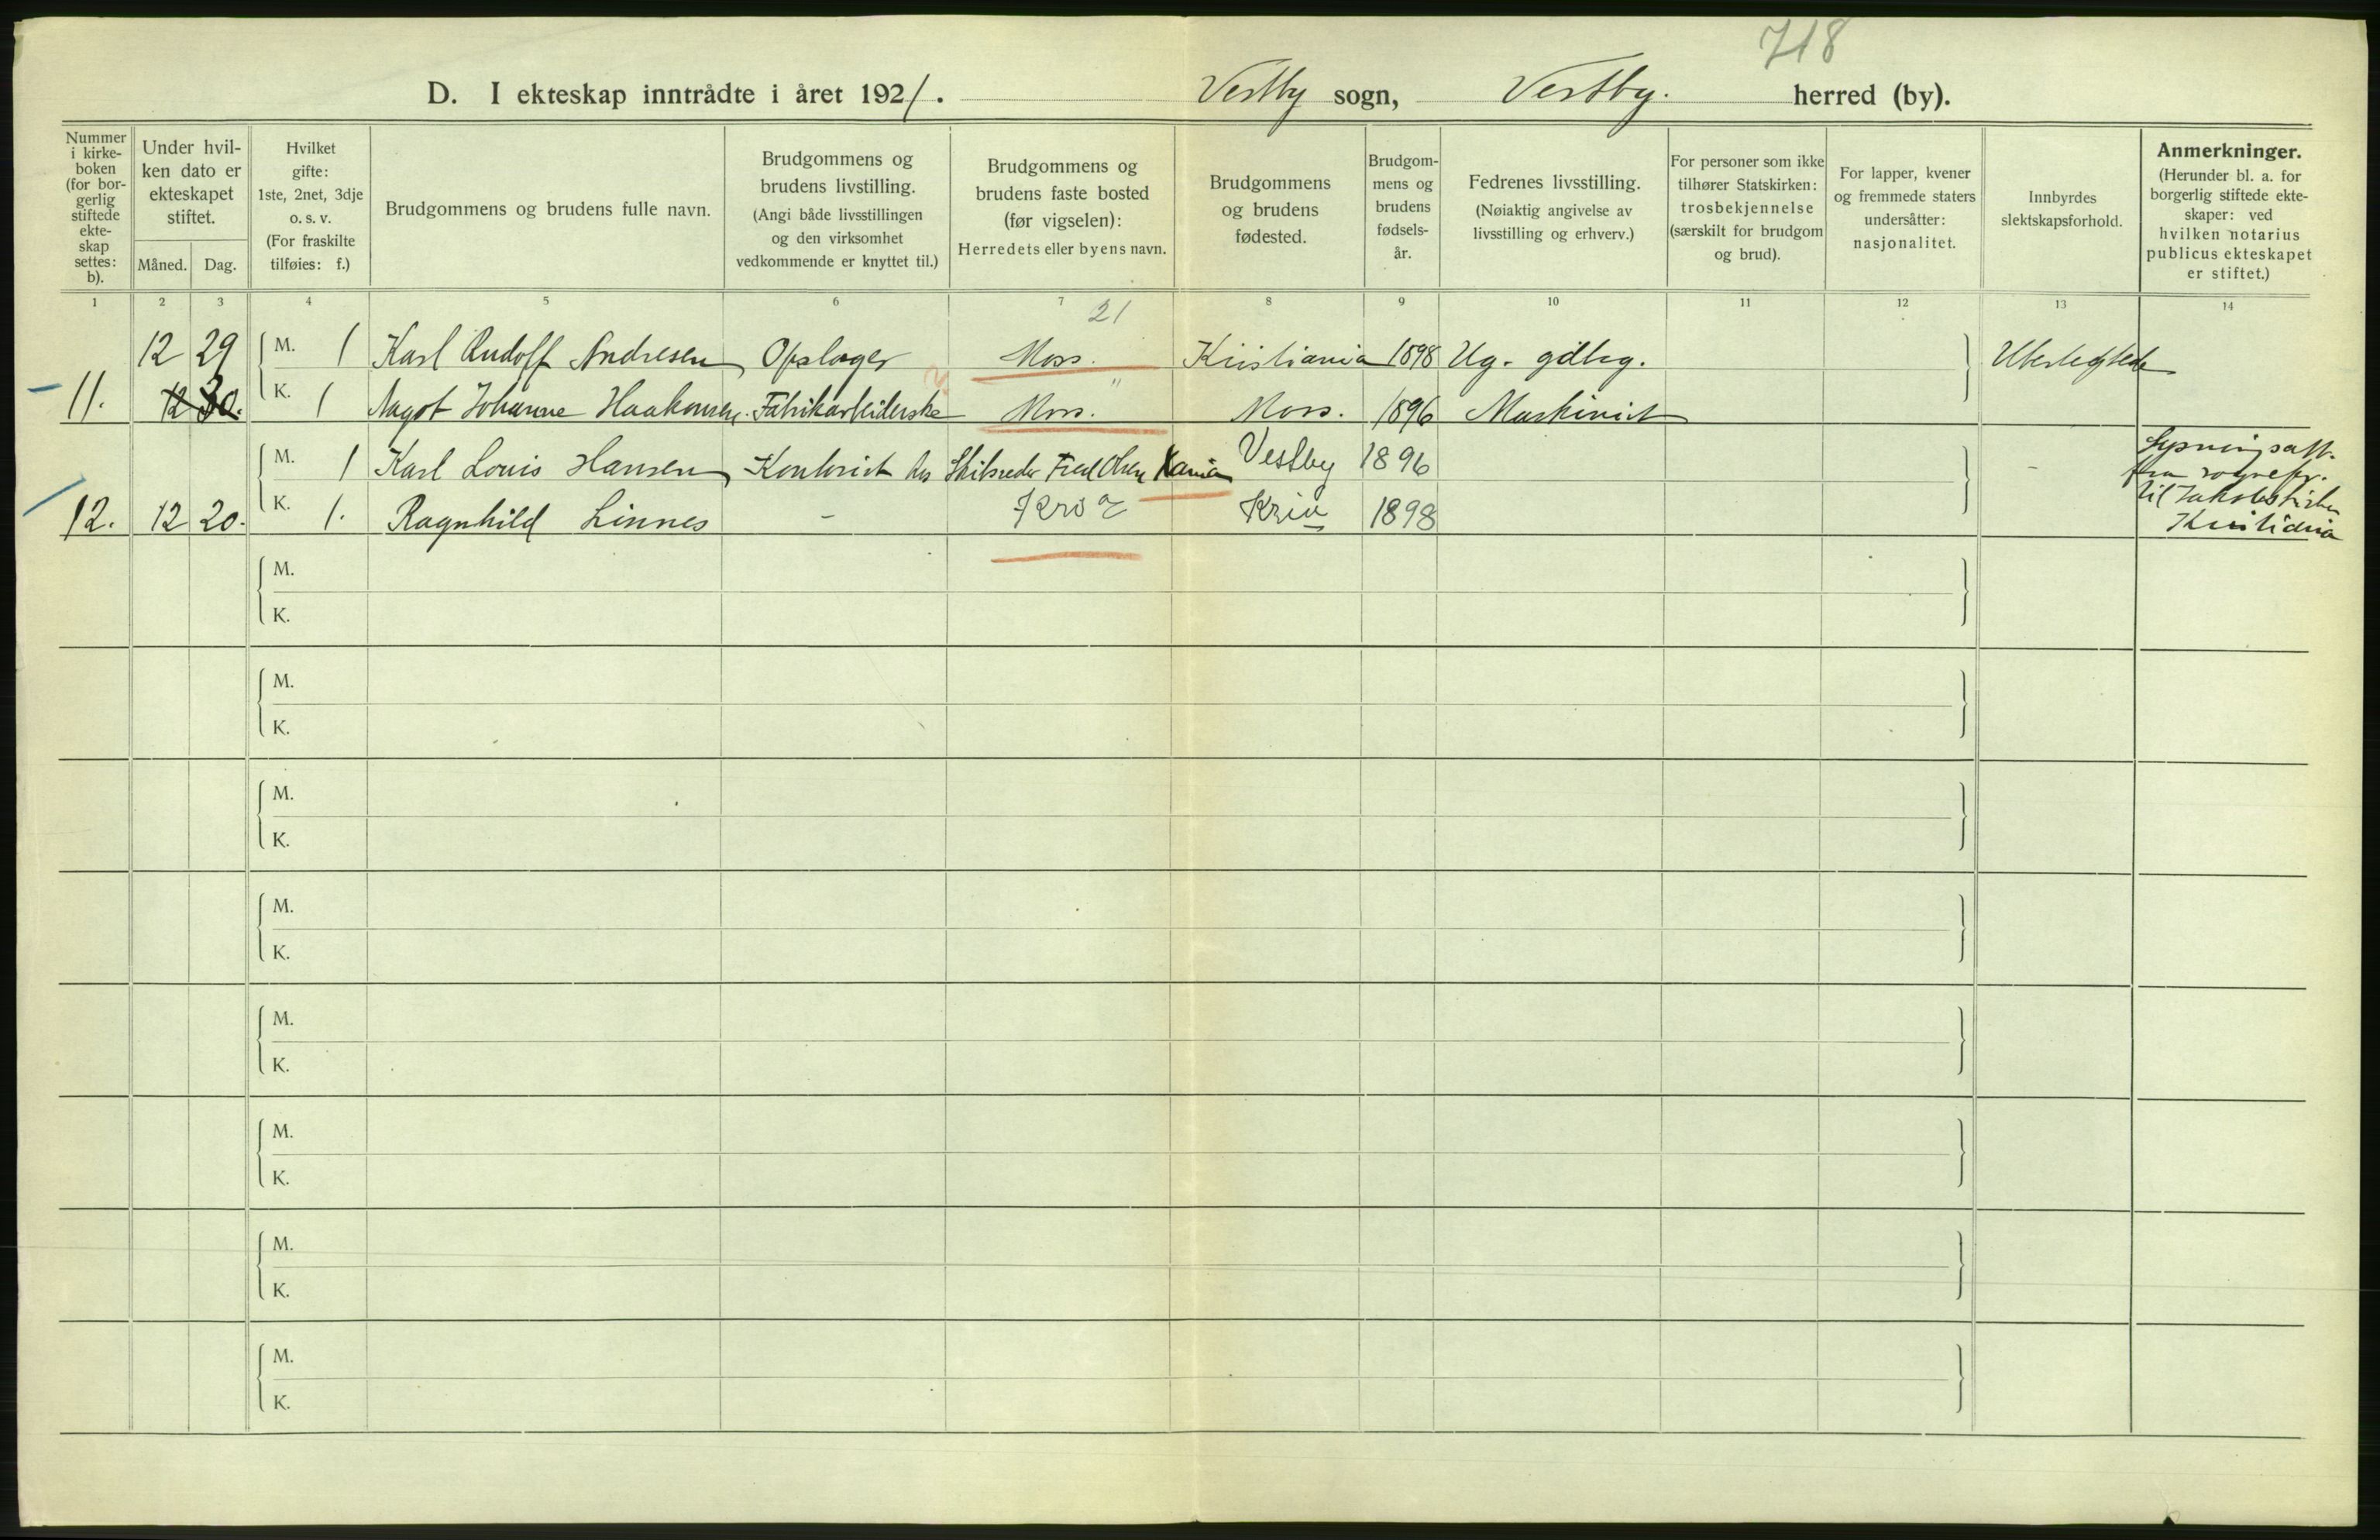 718
D. I ekteskap inntrådte i året 1921. Vestby sogn, Vestby. herred (by).
Nummer i kirke- boken (for bor- gerlig stiftede ekte- skap settes: b).
Under hvil- ken dato er ekteskapet stiftet.
Måned. Dag.
Hvilket gifte: 1ste, 2net, 3dje o. s. v. (For fraskilte tilføies: f.)
Brudgommens og brudens fulle navn.
Brudgommens og brudens livstilling. (Angi både livsstillingen og den virksomhet vedkommende er knyttet til.)
Brudgommens og brudens faste bosted (før vigselen): Herredets eller byens navn.
Brudgommens og brudens fødested.
Brudgom- mens og brudens fødsels- år.
Fedrenes livsstilling. (Nøiaktig angivelse av livsstilling og erhverv.)
For personer som ikke tilhører Statskirken: trosbekjennelse (særskilt for brudgom og brud).
For lapper, kvener og fremmede staters undersåtter: nasjonalitet.
Innbyrdes slektskapsforhold.
Anmerkninger. (Herunder bl. a. for borgerlig stiftede ekte- skaper: ved hvilken notarius publicus ekteskapet er stiftet.)
1 2 3 4 5 6 7 8 9 10 11 12 13 14
21
12 29 M. 1 Karl Rudolf Andresen Opslager Moss. Kristiania 1898 Ug. gdbrg. Ubeslegtede
11. 12 30. K. 1 Aagot Johanne Haakonsen. Fabrikarbeiderske Moss. " Moss. 1896 Maskinist
M. 1 Karl Louis Hansen Kontorist hos Skibsreder Fred Olsen Kania Vestby 1896 - Lysningsatt.
fra sognepr.
12. 12 20. K. 1. Ragnhild Linnes - Kria Kria 1898 til Jakobskirken
Kristiania
M.
K.
M.
K.
M.
K.
M.
K.
M.
K.
M.
K.
M.
K.
M.
K.